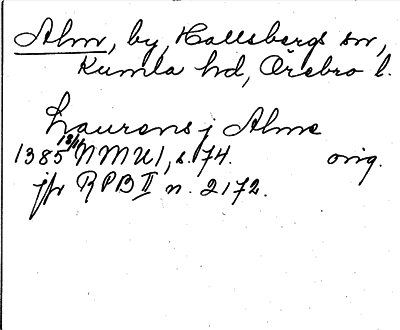 Alm, by, Hallsbergs sn,
Kumla hd, Örebro l.
Laurens j Alme
1385 13/11 NMU1, s. 74. orig.
jfr RPB II n. 2172.